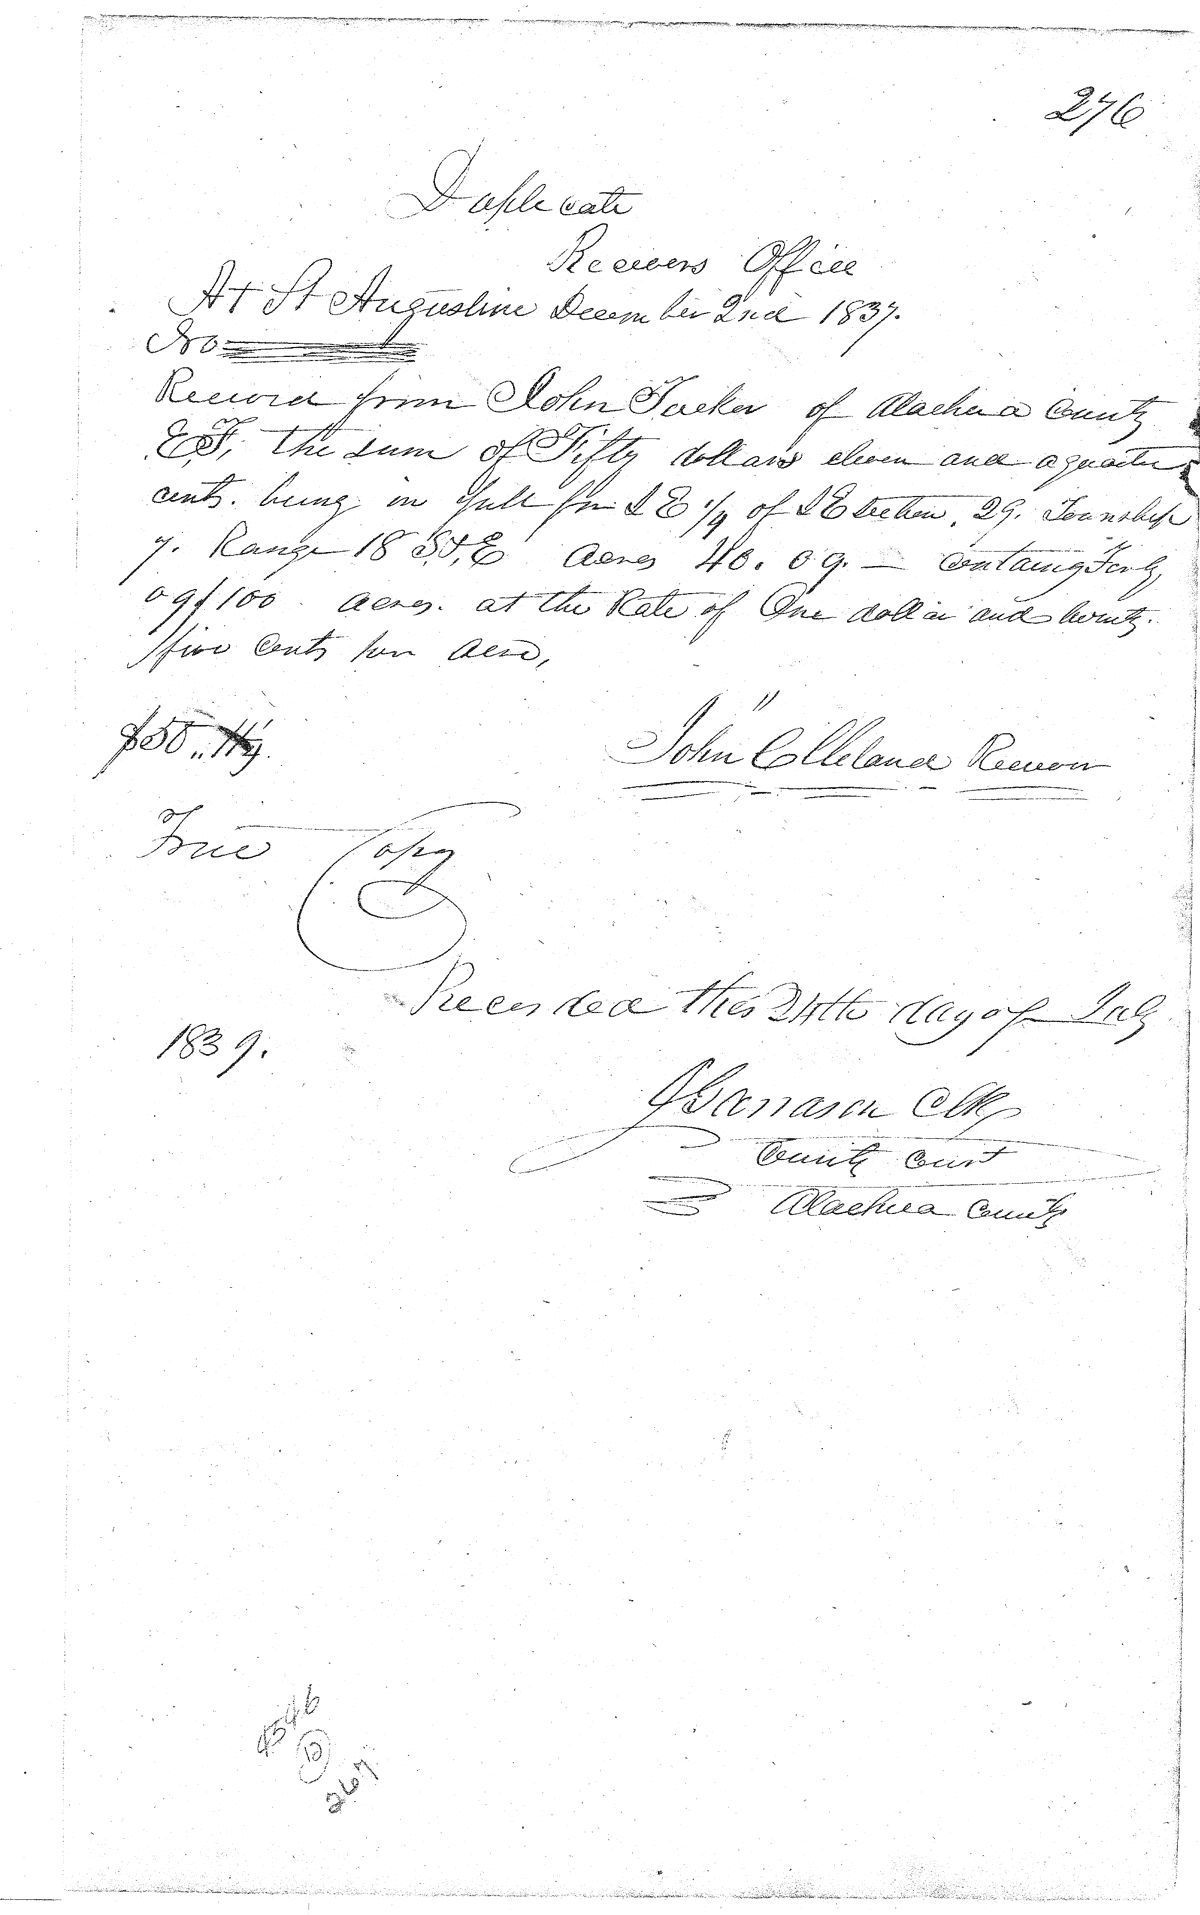 276
Duplicate
Receivers Office
At St Augustine December 2nd 1837.
No
Received from John Tucker of Alachua County
E.F, the sum of Fifty dollars eleven and a quarter
cents. being in full for S E 1/4 of S E Section, 29. Township
7. Range 18 S, & E Acres 40. 09. — containg Forty,
09/100 acres. at the Rate of One dollar and twenty.
five Cents per acre,
$50.. 11¼.
John C Cleland Receiver
True Copy
Recorded this 24th day of July
1839.
Clk
County Court
Alachua County
4546
D
267